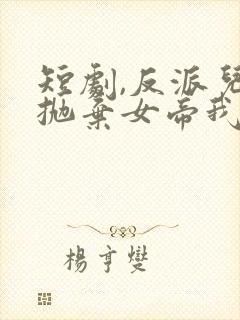 短劇,反派兒
拋棄女帝我
楊亨燮